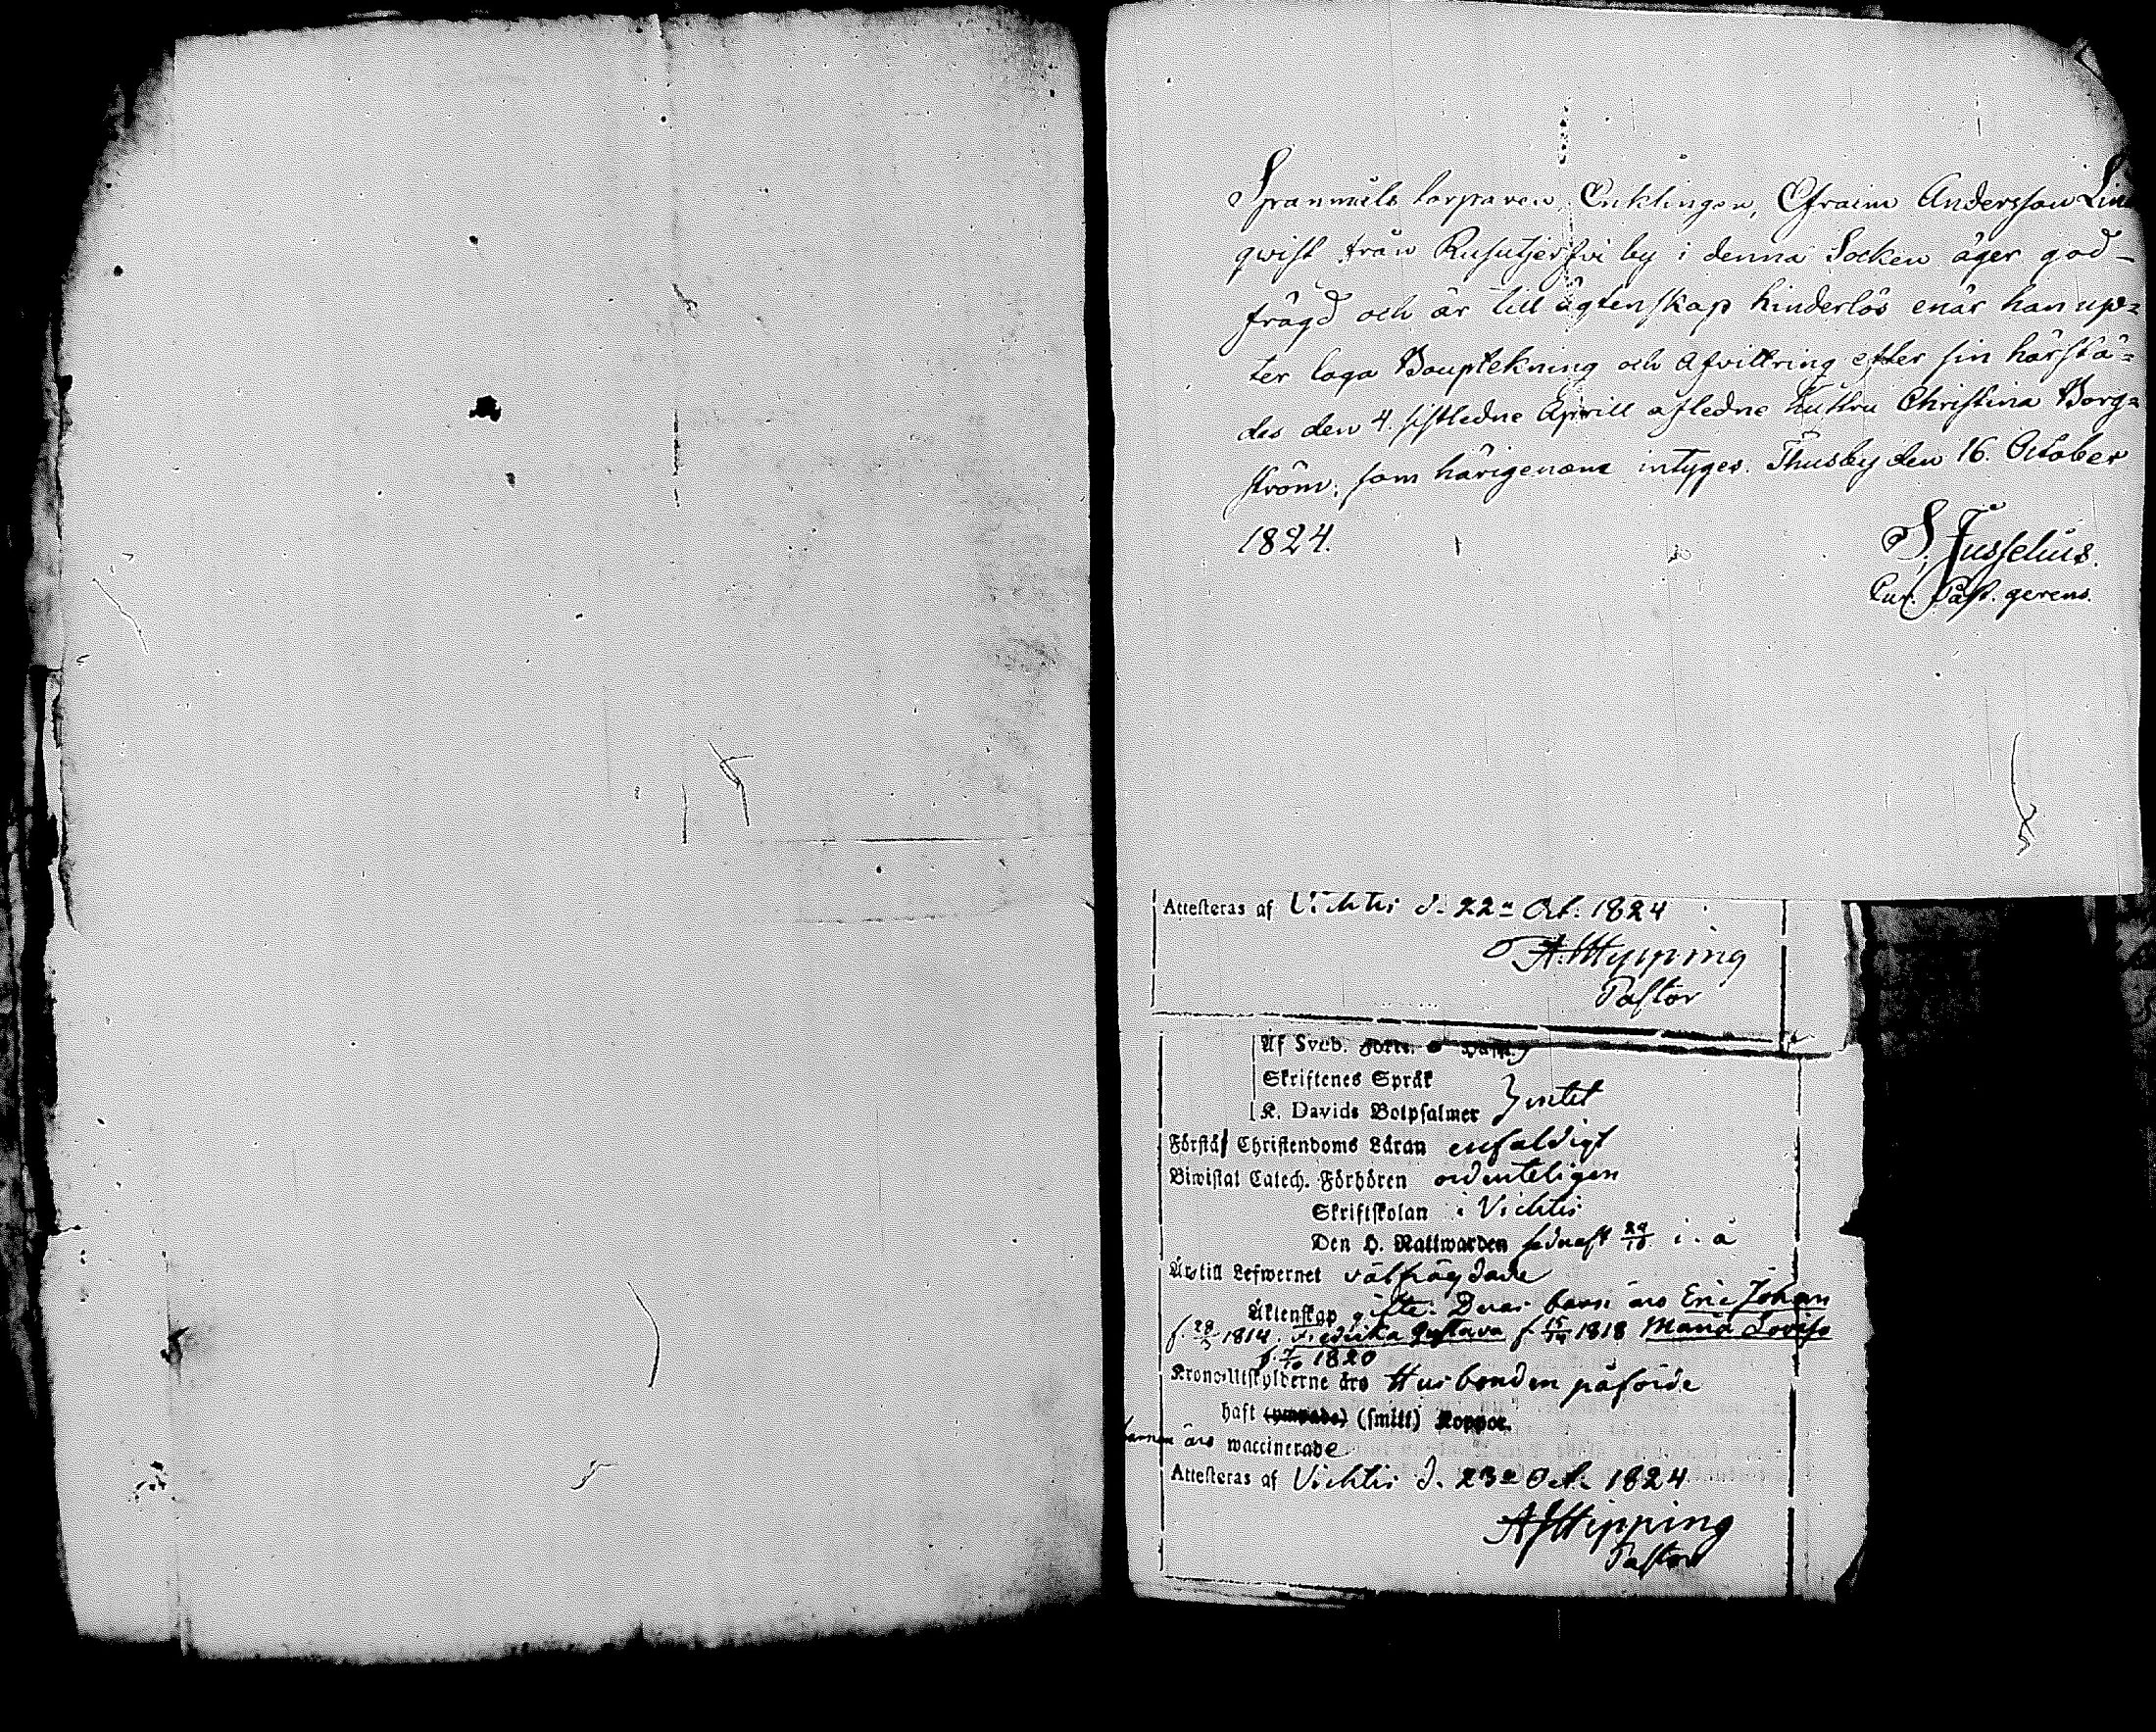 Spanmåls torparen, Enklingen, Efraim Andersson Lind
qvist från Rusutjerfvi by i denna Socken äger god-
frägd och är till ägtenskap hinderlös enär han up=
ter laga Bouptekning och Afvittring efter sin härstä=
des den 4. sistledne Aprill afledne hustru Christina Borg=
ström; som härigenom intyges. Thusby den 16. October
1824.
S. Fusselius.
Cur. Past. gerens.
Attesteras af Vichtis d. 22n Oct. 1824
A. J. Hipping
Pastor
Af Sveb. Förkl.
Skriftenes Språk
K. Davids Botpsalmer } intet
Förstå Christendoms Läran enfaldigt
Biwistat Catech. Förhören ordenteligen
Skriftskolan i Vichtis
Den H. Nattwarden sednast 24/10 i. å
Är till Lefwernet välfrägdade
Äktenskap gifte. Deras barn äro Eric Johan
f. 28/5 1814. Fredrika Gustava f. 1818 Maria Lovisa
f. 7/10 1820
Krono-Utskylderne äro Husbonden påförde
haft (ympade) (smitt) Koppor.
barnen äro waccinerade
Attesteras af Vichtis d. 23e Oct. 1824
A J Hipping
Pastor